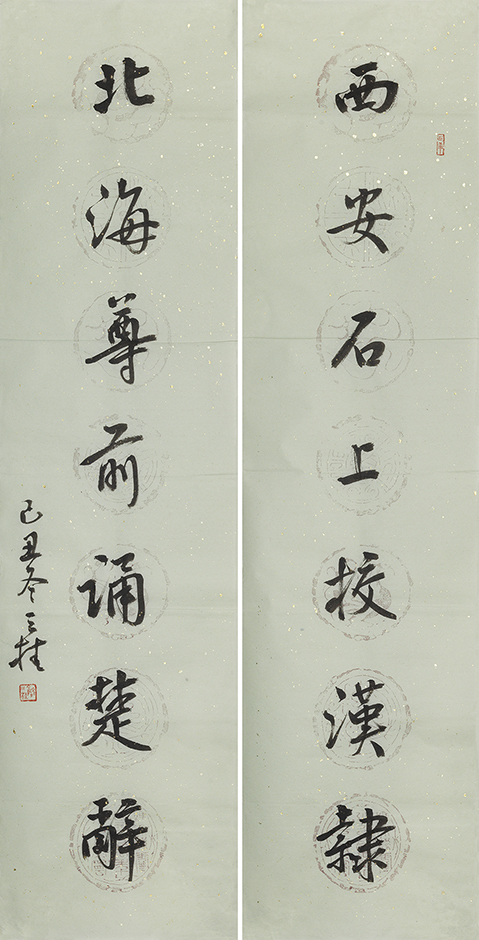 西安石上校漢隸
北海尊前誦楚辭
己丑冬三桂